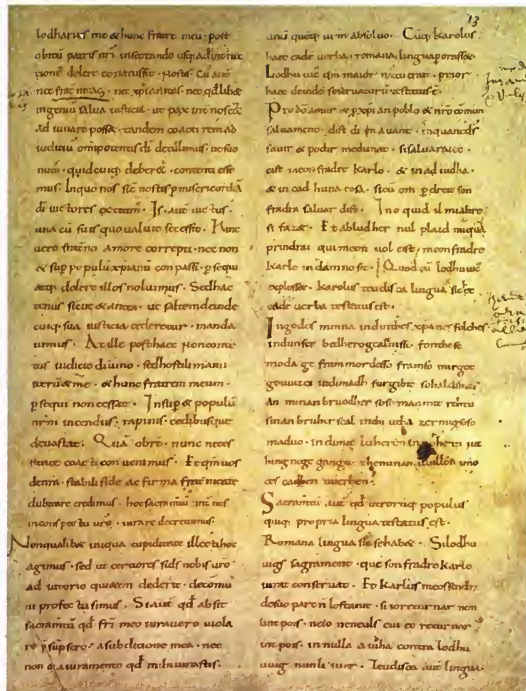 13
lodharius me & hunc fratre meu post
obitu patris nri insectando usq; ad inter
cione delere conatus sit nostis. Cu aute
nec fraternitas nec xpianitas nec quodlib&
ingeniu salva iusticia ut pax int nos e&
adiuvare poss&. tandem coacti rem ad
iuditiu omnipotentis di detulimus. ut suo
nutu quid cuiq; deber& contenti esse
mus. In quo nos sic nostis p misericordia
di victores extitim. Is aute victus
una cu suis quo valuit secessit. Hinc
vero fraterno amore correpti nec non
& sup populu xpianu conpassi psequi
atq; delere illos noluimus. Sed hac
tenus sicut & antea ut saltem deinde
cuiq; sua iusticia cederetur manda
vimus. At ille post haec non conten
tus iudicio divino sed hostili manu
iteru & me & hunc fratrem meum
psequi non cessat. Insup & populu
nrm incendiis rapinis cedibusque
devastat. Qua obre nunc neces
sitate coacti convenimus. Et qm vos
de nra stabili fide ac firma fraternitate
dubitare credimus. hoc sacramtu int nos
in conspectu vro iurare decrevimus.
Non qualiba iniqua cupiditate illecti hoc
agimus. sed ut certiores si ds nobis vro
adiutorio quietem dederit de comu
ni profectu simus. Si aute qd absit
sacramtu qd fri meo iuravero viola
re psupsero. a subditione mea nec
non & a iuramento qd mihi iurastis.
unu queq; vrm absolvo. Cuq; Karolus
haec eade verba romana lingua porass&.
Lodhuvic qm maior natu erat prior
haec deinde se servaturu testatus e.
Pro do amur & p xpian poblo & nro comun
salvament. dist di in avant. in quant ds
savir & podir me dunat. si salvarai eo
cist meon fradre Karlo. & in adiudha.
& in cad huna cosa. sicu om p dreit son
fradra salvar dist. In o quid il mi altre
si faz&. Et ab ludher nul plaid nuqua
prindrai qui meon vol cist meon fradre
Karle in damno sit. Quod cu lodhuvic
explesset. Karolus teudisca lingua sic ec
eade verba testatus est.
In godes minna ind in thes xpanes folches
ind unser bedhero gealtnissi. fon these
moda ge frammordesso framso mir got
geuuizci indi madh furgibit so hald ih tes
an minan bruodher soso man mit rehtu
sinan bruher scal in thi utha zer mig so so
maduo. indi mit luheren in
hing ne gege ganga. zhe minan uuillon imo
ce scadhen uuerhen.
Sacramtu aute qd utrorumq; populus
quiq; propria lingua testatus est.
Romana lingua sic se habet. Si lodhu
uigs sagrament. que son fradre Karlo
iurat conservat. Et Karlus meos sendra
de suo part n lostanit. si io returnar non
lint pois. ne io ne neuls cui eo returnar
int pois. in nulla aiudha contra lodhu
uuig nun li iuer. Teudisca aute lingua.